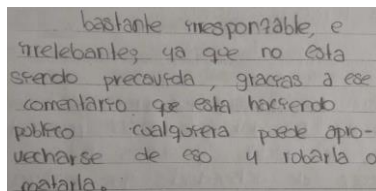 bastante irresponzable, e
irrelebante; ya que no esta
siendo precavida, gracias a ese
comentario que esta haciendo
publico cualquiera puede apro-
vecharse de eso y robarla o
matarla.